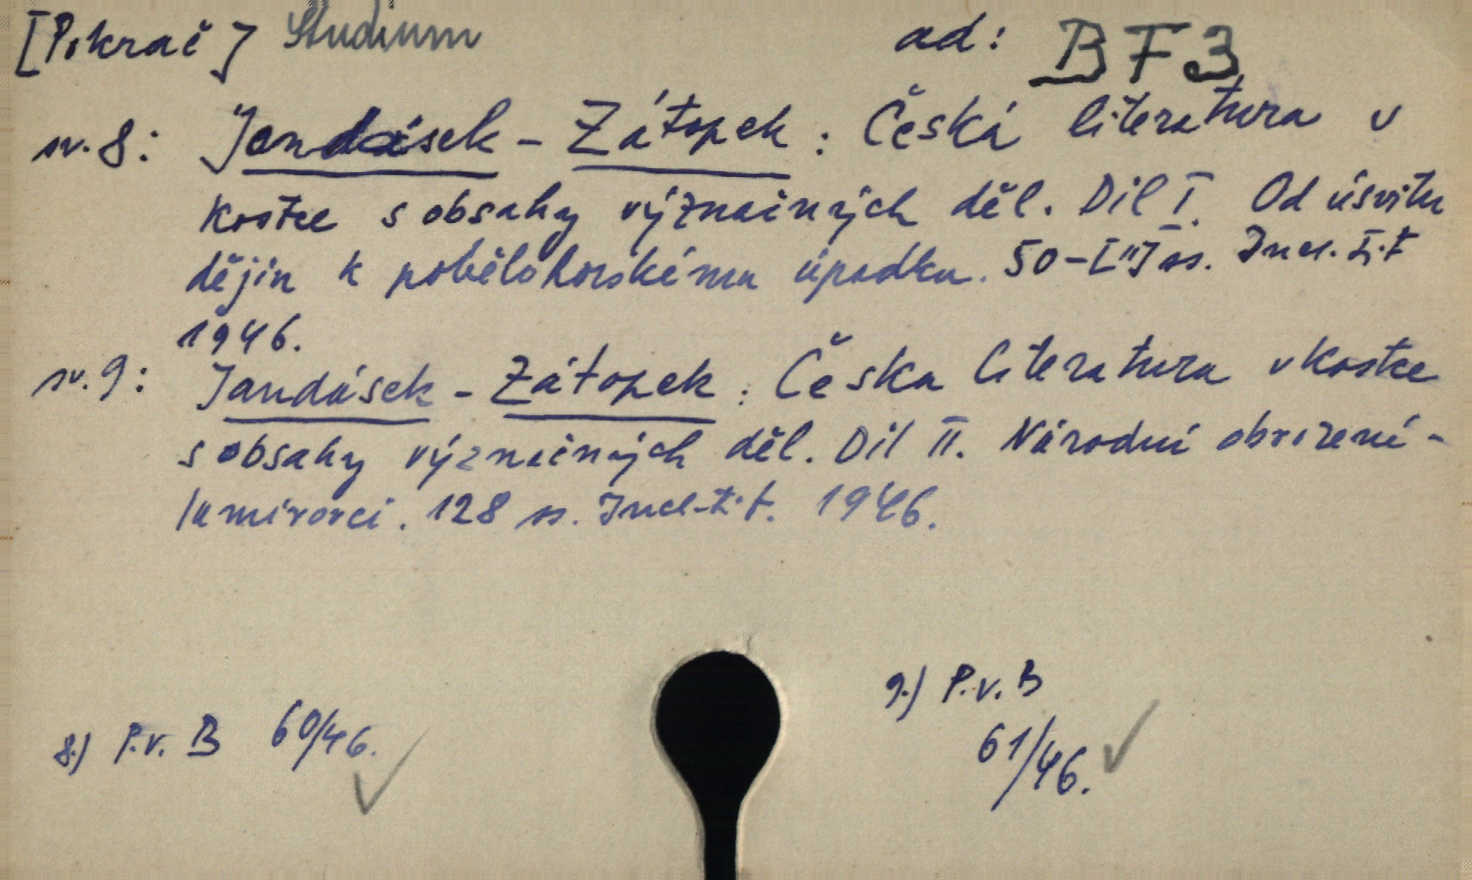 [Pokrač] Studium ad: BF3
sv. 8: Jandásek - Zátopek: Česká literatura v
kostce s obsahy význačných děl. Díl I. Od úsvitu
dějin k pobělohorskému úpadku. 50-[II] ss. Incl. t.t
1946.
sv. 9: Jandásek - Zátopek: Česka literatura v kostce
s obsahy význačných děl. Díl II. Národní obrození -
lumírovci. 128 ss. Incl. t.t. 1946.
9.) P.v. B
8.) P.v. B 60/46.
61/46.